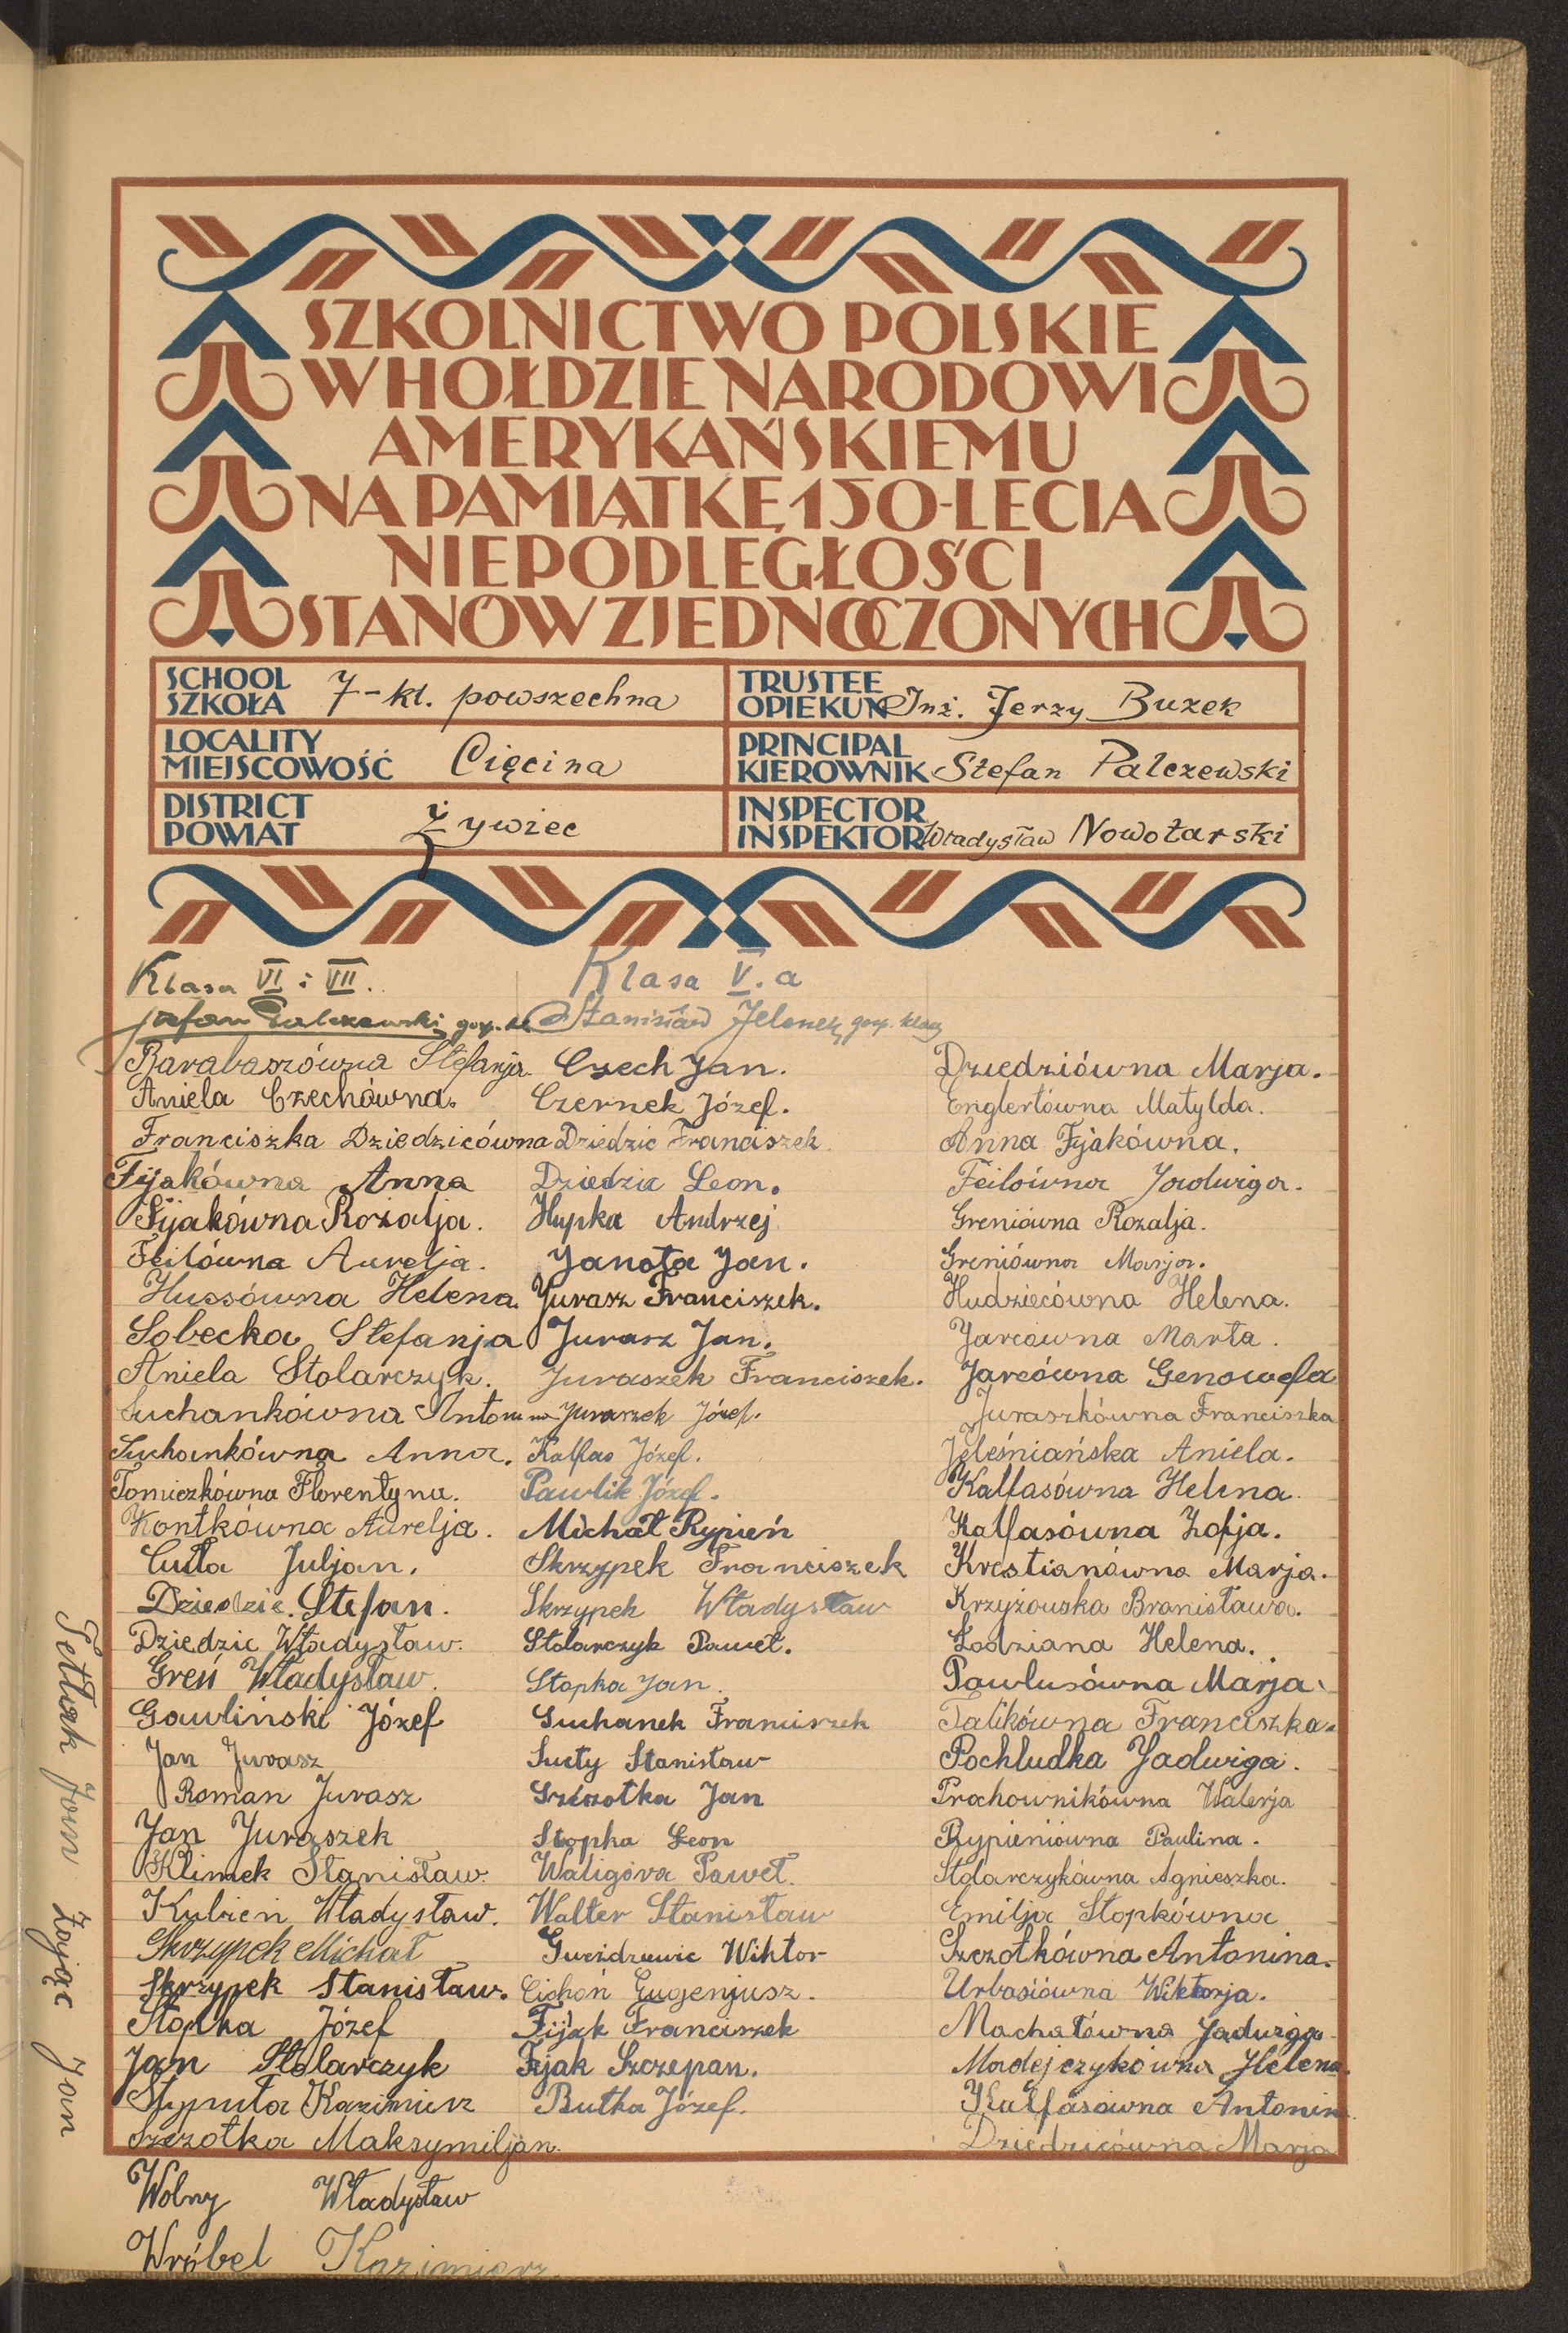 SZKOLNICTWO POLSKIE
W HOŁDZIE NARODOWI
AMERYKAŃSKIEMU
NA PAMIĄTKĘ 150-LECIA
NIEPODLEGŁOŚCI
STANÓW ZJEDNOCZONYCH
SCHOOL
SZKOŁA 7-kl. powszechna
LOCALITY
MIEJSCOWOŚĆ Cięcina
DISTRICT
POWIAT Żywiec
TRUSTEE
OPIEKUN Inż. Jerzy Buzek
PRINCIPAL
KIEROWNIK Stefan Palczewski
INSPECTOR
INSPEKTOR Władysław Nowotarski
Klasa VI i VII.
Stefan Palczewski gosp. kl.
Barabaszówna Stefanja.
Aniela Czechówna.
Franciszka Dziedzicówna
Fijakówna Anna
Fijakówna Rozalja.
Feilówna Aurelja.
Hussówna Helena.
Sobecka Stefanja
Aniela Stolarczyk.
Suchankówna Antonina
Suchankówna Anna.
Tomiczkówna Florentyna.
Kontkówna Aurelja.
Cuła Juljan.
Dziedzic Stefan.
Dziedzic Władysław.
Greń Władysław.
Gawliński Józef
Jan Jurasz
Roman Jurasz
Jan Juraszek
Klimek Stanisław.
Kubień Władysław.
Skrzypek Michał
Skrzypek Stanisław.
Stopka Józef
Jan Stolarczyk
Stypuła Kazimierz
Szczotka Maksymiljan.
Wolny Władysław
Wróbel Kazimierz
Klasa V.a
Stanisław Jelonek, gosp. klasy
Czech Jan.
Czernek Józef.
Dziedzic Franciszek.
Dziedzic Leon.
Hupka Andrzej
Janota Jan.
Jurasz Franciszek.
Jurasz Jan.
Juraszek Franciszek.
Juraszek Józef.
Kalfas Józef.
Pawlik Józef.
Michał Rypień
Skrzypek Franciszek
Skrzypek Władysław
Stolarczyk Paweł.
Stopka Jan.
Suchanek Franciszek
Suty Stanisław
Szczotka Jan
Stopka Leon
Waligóra Paweł.
Walter Stanisław
Wiktor
Cichoń Eugenjusz.
Fijak Franciszek
Fijak Szczepan.
Butka Józef.
Dziedziówna Marja.
Englertówna Matylda.
Anna Fijakówna.
Feilówna Jadwiga.
Greniówna Rozalja.
Greniówna Marja.
Hudziecówna Helena.
Jarcówna Marta.
Jarcówna Genowefa
Juraszkówna Franciszka
Jeleśniańska Aniela.
Kalfasówna Helena.
Kalfasówna Zofja.
Krestianówna Marja.
Krzyżowska Bronisława.
Łodziana Helena.
Pawlusówna Marja.
Talikówna Franciszka.
Pochludka Jadwiga.
Prochownikówna Walerja
Rypieniówna Paulina.
Stolarczykówna Agnieszka.
Emilja Stopkówna
Szczotkówna Antonina.
Urbasiówna Wiktorja.
Machałówna Jadwiga
Madejczykówna Helena.
Kalfasówna Antonin
Dziedzicówna Marja
Setlak Jan Zając Jan